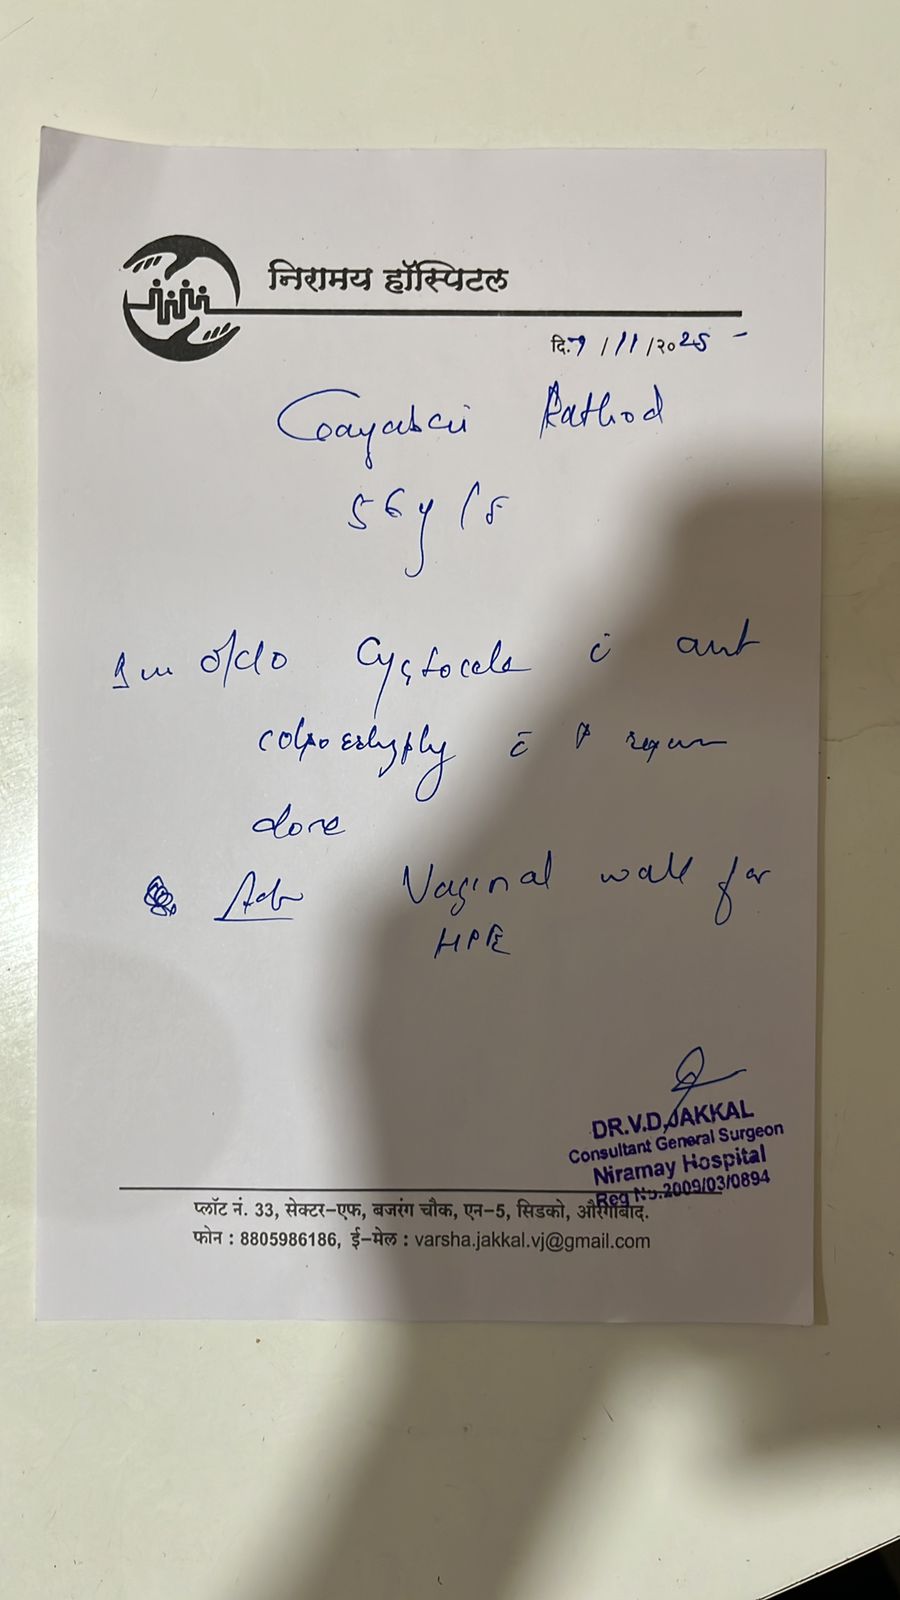 निरामय हॉस्पिटल
दि. 7/11/२०25
Gayabai Rathod
56y / F
Cystocele c ant
c repair
done
Adv Vaginal wall for
HPE
DR.V.D.JAKKAL
Consultant General Surgeon
Niramay Hospital
Reg No.2009/03/0894
प्लॉट नं. 33, सेक्टर-एफ, बजरंग चौक, एन-5, सिडको, औरंगाबाद.
फोन : 8805986186, ई-मेल : varsha.jakkal.vj@gmail.com